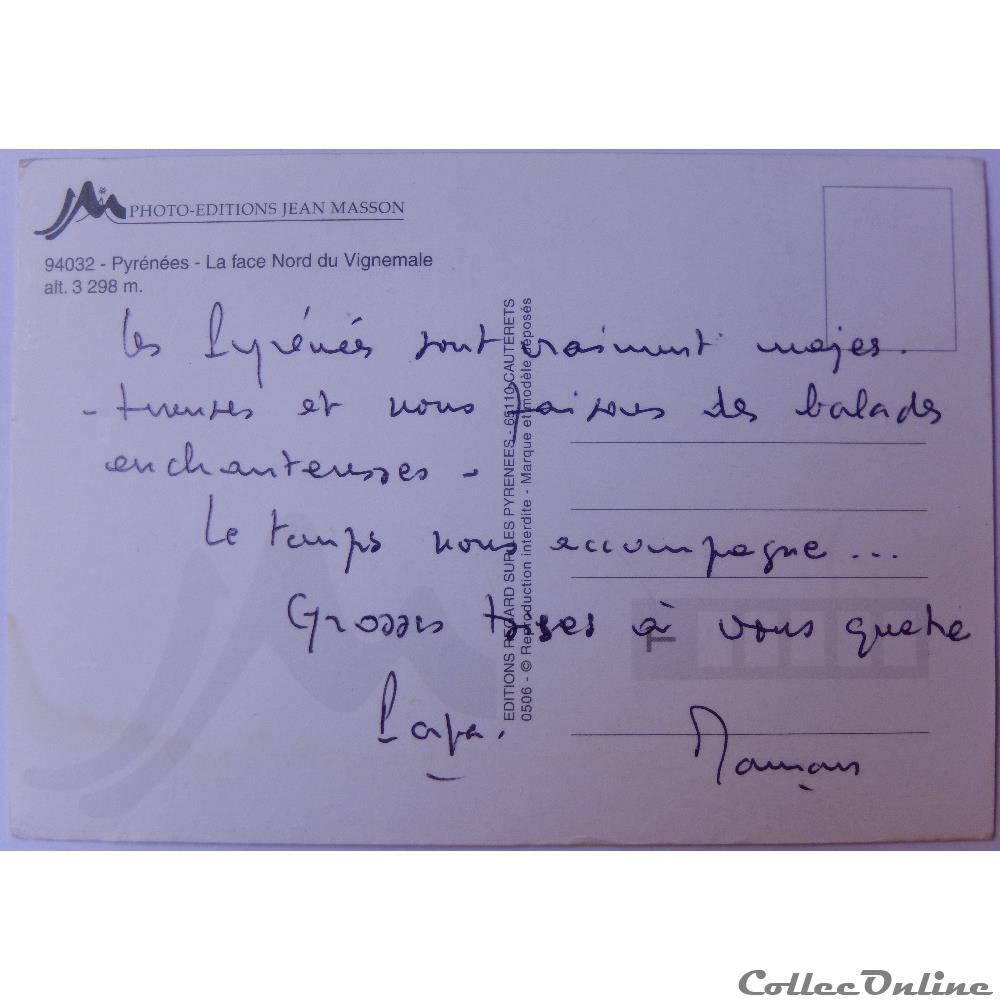 PHOTO-EDITIONS JEAN MASSON
94032 - Pyrénées - La face Nord du Vignemale
alt. 3 298 m.
Les Pyrénées sont vraiment majes-
-tueuses et nous faisons des balades
enchanteresses -
Le temps nous accompagne...
Grosses bises à vous quatre
Papa.
Maman
EDITIONS REGARD SUR LES PYRENEES - 65110 CAUTERETS
0506 - © Reproduction interdite - Marque et modèle déposés
CollecOnline